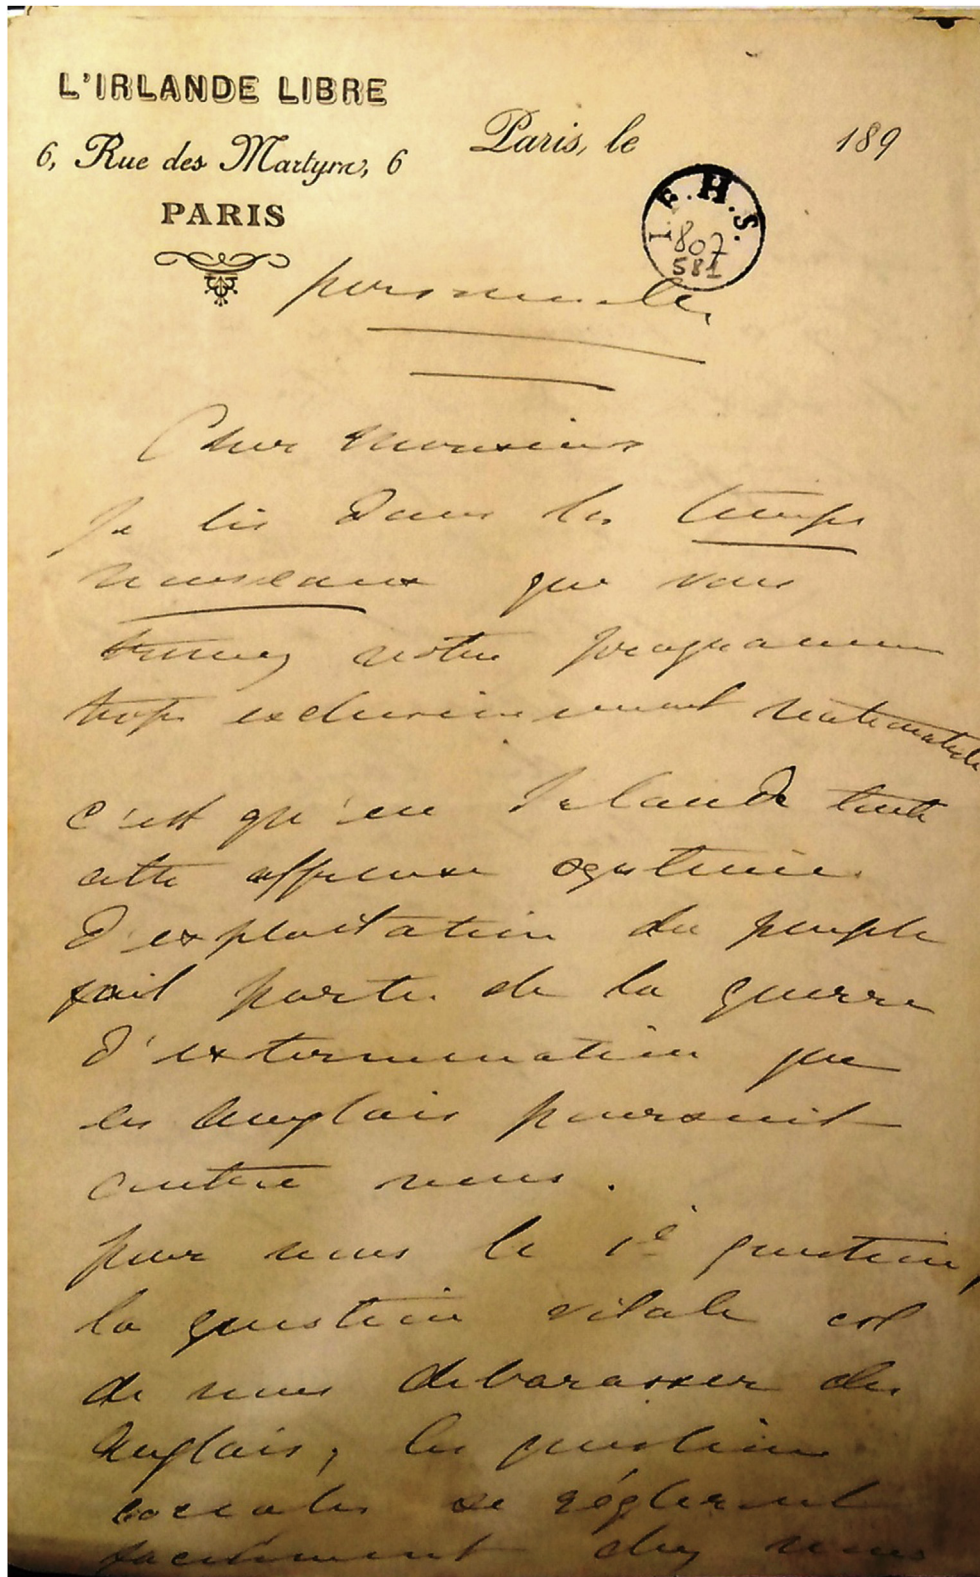 L'IRLANDE LIBRE
6, Rue des Martyrs, 6
PARIS
Paris, le 189
I. F. H. S.
807
581
personnelle
Cher Monsieur
Je lis dans les temps
nouveaux que vous
trouvez notre programme
trop exclusivement nationaliste
c'est qu'en Irlande toute
cette affreuse systeme
d'exploitation du peuple
fait partie de la guerre
d'extermination que
les Anglais poursuit
contre nous.
pour nous la 1e question,
la question vitale est
de nous debarasser des
Anglais, les questions
sociales se régleront
facilement chez nous